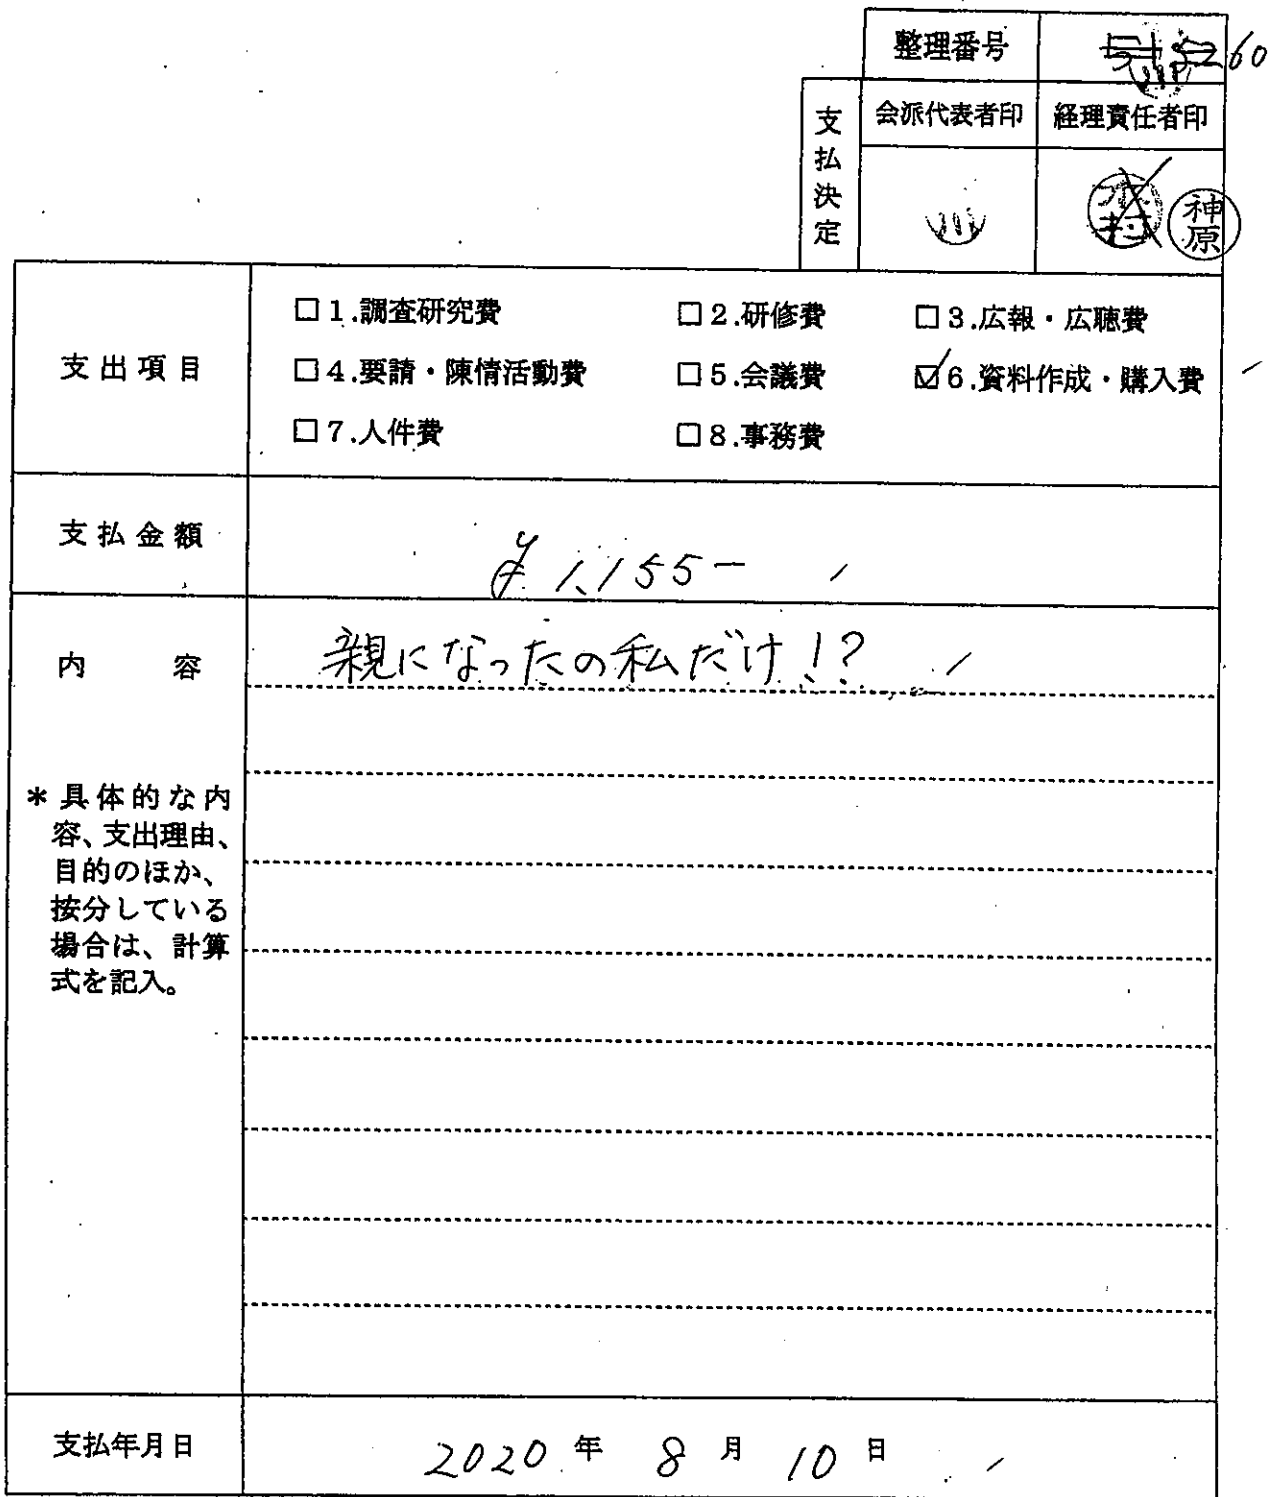 整理番号 260
支払決定
会派代表者印 経理責任者印
神原
支出項目
□1.調査研究費 □2.研修費 □3.広報・広聴費
□4.要請・陳情活動費 □5.会議費 ☑6.資料作成・購入費
□7.人件費 □8.事務費
支払金額 ¥1,155-
内容 親になったの私だけ!?
*具体的な内
容、支出理由、
目的のほか、
按分している
場合は、計算
式を記入。
支払年月日 2020年 8月 10日